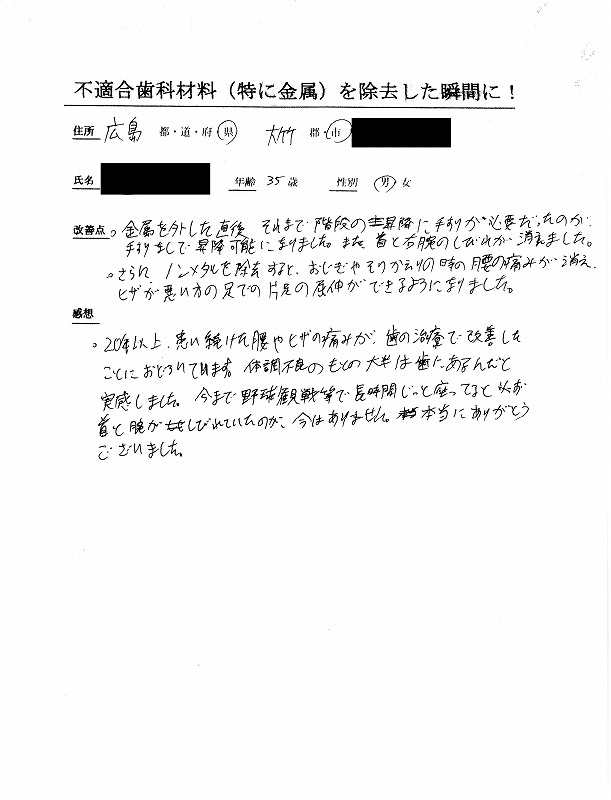 不適合歯科材料（特に金属）を除去した瞬間に！
住所 広島 都・道・府・県 大竹 郡・市
氏名 年齢 35 歳 性別 男 女
改善点 。金属を外した直後、それまで階段の昇降に手すりが必要だったのが、
手すりなしで昇降可能になりました。また首と右腕のしびれが消えました。
。さらに ノンメタルを除去すると、おじぎやそりかえりの時の腰の痛みが消え、
ヒザが悪い方の足での片足の屈伸ができるようになりました。
感想
。20年以上、患い続けた腰やヒザの痛みが、歯の治療で改善した
ことにおどろいています。体調不良のもとの大半は歯にあるんだと
実感しました。今まで野球観戦等で長時間じっと座ってると
首と腕がしびれていたのが、今はありません。本当にありがとう
ございました。